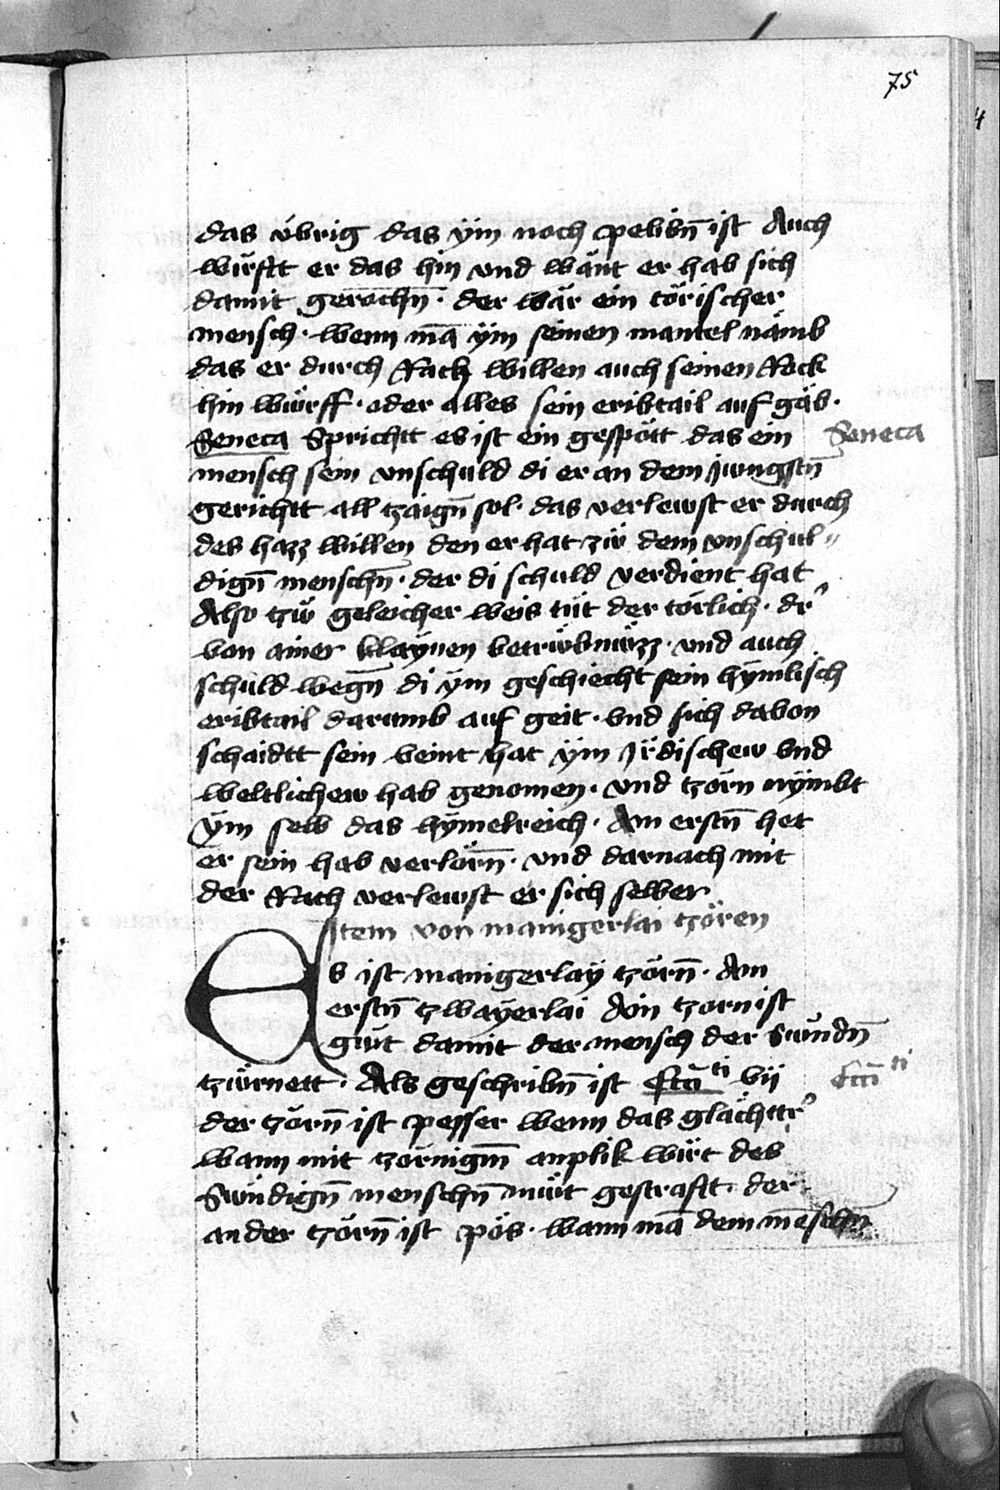 75
das übrig das ẏm noch pelibn̄ ist Auch
würfft er das hin vnd wänt er hab sich
damit gerochn̄ · der wär ein törischer
mensch · wenn mā ẏm seinen mantel nämb
das er durch Rach willen auch seinen Rock
hin würff · oder alles sein eribtail auf gäb ·
Seneca Sprichtt es ist ein gespött das ein
Seneca
mensch sein vnschuld di er an dem Jungstn̄
gerichtt all tzaign̄ sol · das verlewst er durch
des hazz willen den er hat zü dem vnschul〃
dign̄ menschn̄ · der di schuld verdient hat
Also tzü geleicher weis tüt der törlich · dr̕
von ainer klaÿnen betrübnüzz · vnd auch
schuld wegn̄ di ẏm geschiecht sein hymlisch
eribtail darumb auf geit · vnd sich davon
schaidtt sein veint hat ẏm Jrdischew vnd
weltlichew hab genomen · vnd tzorn nÿmbt
ẏm selb das hÿmelreich · Am erstn̄ het
er sein hab verlorn̄ · vnd darnach mit
der Rach verlewst er sich selber
Item von manigerlai tzören
Es ist manigerlaÿ tzörn̄ · Am
erstn̄ tzwaÿerlai Ain tzorn ist
güt damit der mensch der sündn̄
tzürnett · Als geschribn̄ ist Eccᵗⁱ vii
Eccᵗⁱ
der tzorn̄ ist pesser wenn das glächttr̕
wann mit tzörnigm̄ anplik wirt des
Sündign̄ menschn̄ müt gestrafft · der
ander tzörn̄ ist pös · wann mā dem mēschn̄